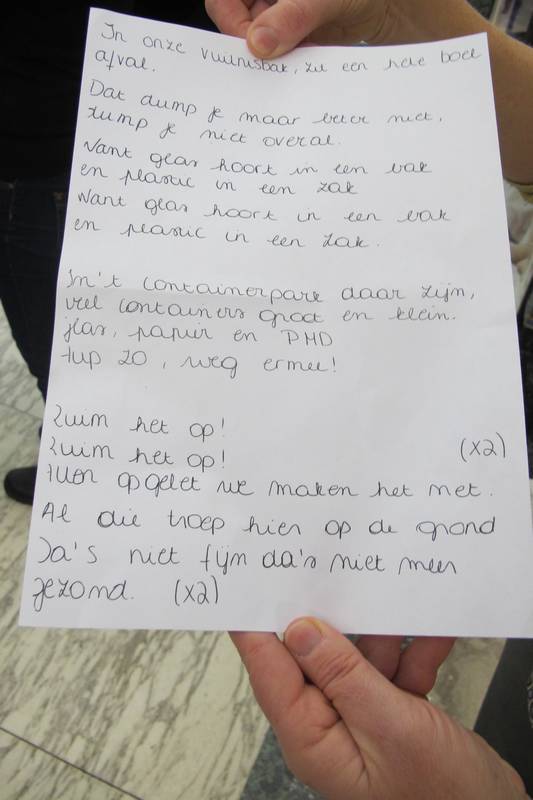 In onze vuilnisbak, zit een hele boel
afval.
Dat dump je maar beter niet,
dump je niet overal.
Want glas hoort in een bak
en plastic in een zak
Want glas hoort in een bak
en plastic in een zak.
In't containerpark daar zijn,
veel containers groot en klein.
glas, papier en PMD
hup zo, weg ermee!
Ruim het op!
Ruim het op! (x2)
even opgelet we maken het net.
Al die troep hier op de grond
Da's niet fijn da's niet meer
gezond. (x2)